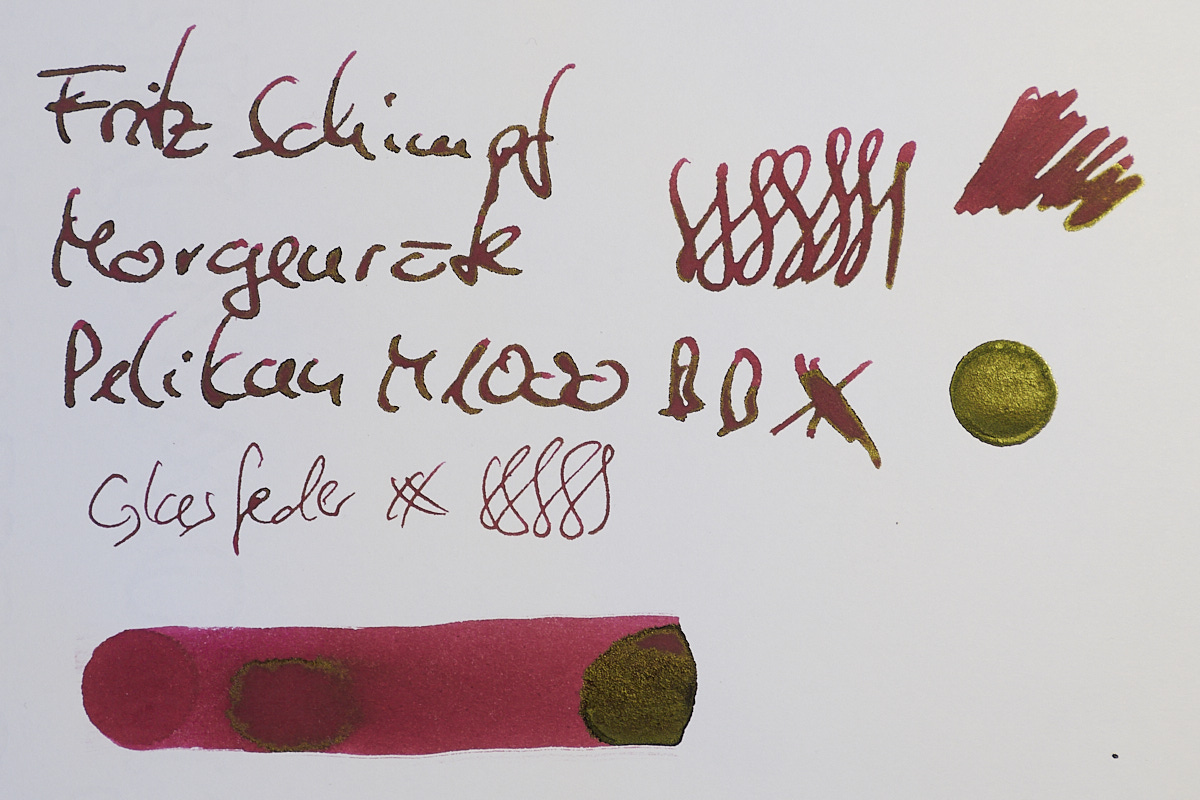 Fritz Schimpf
Morgenröte
Pelikan M1000 BB
Glasfeder